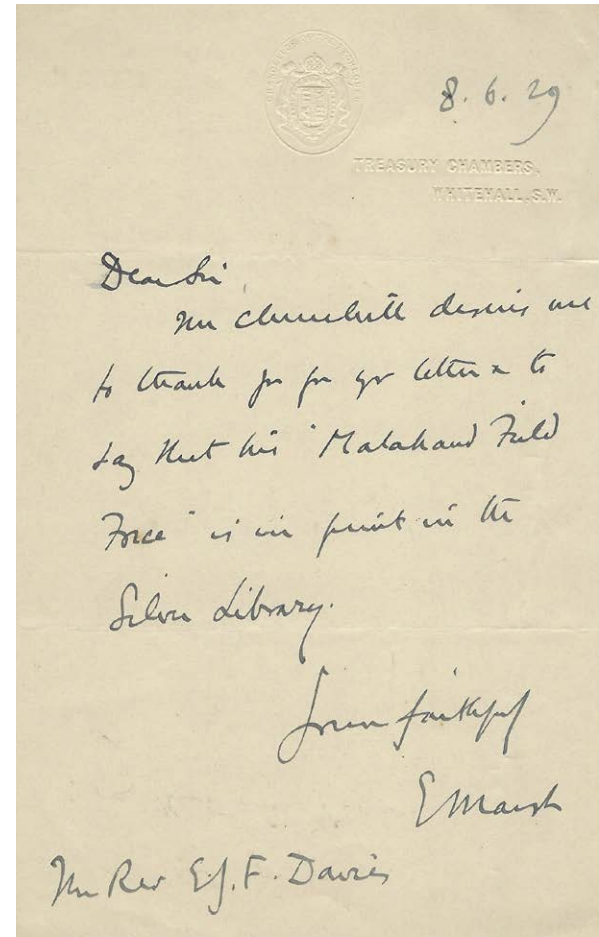 8.6.29
TREASURY CHAMBERS,
WHITEHALL, S.W.
Dear Sir
Mr Churchill desires me
to thank you for yr letter & to
say that his "Malakand Field
Force" is in print in the
Silver Library.
Yours faithfully
E Marsh
The Rev E.J.F. Davies